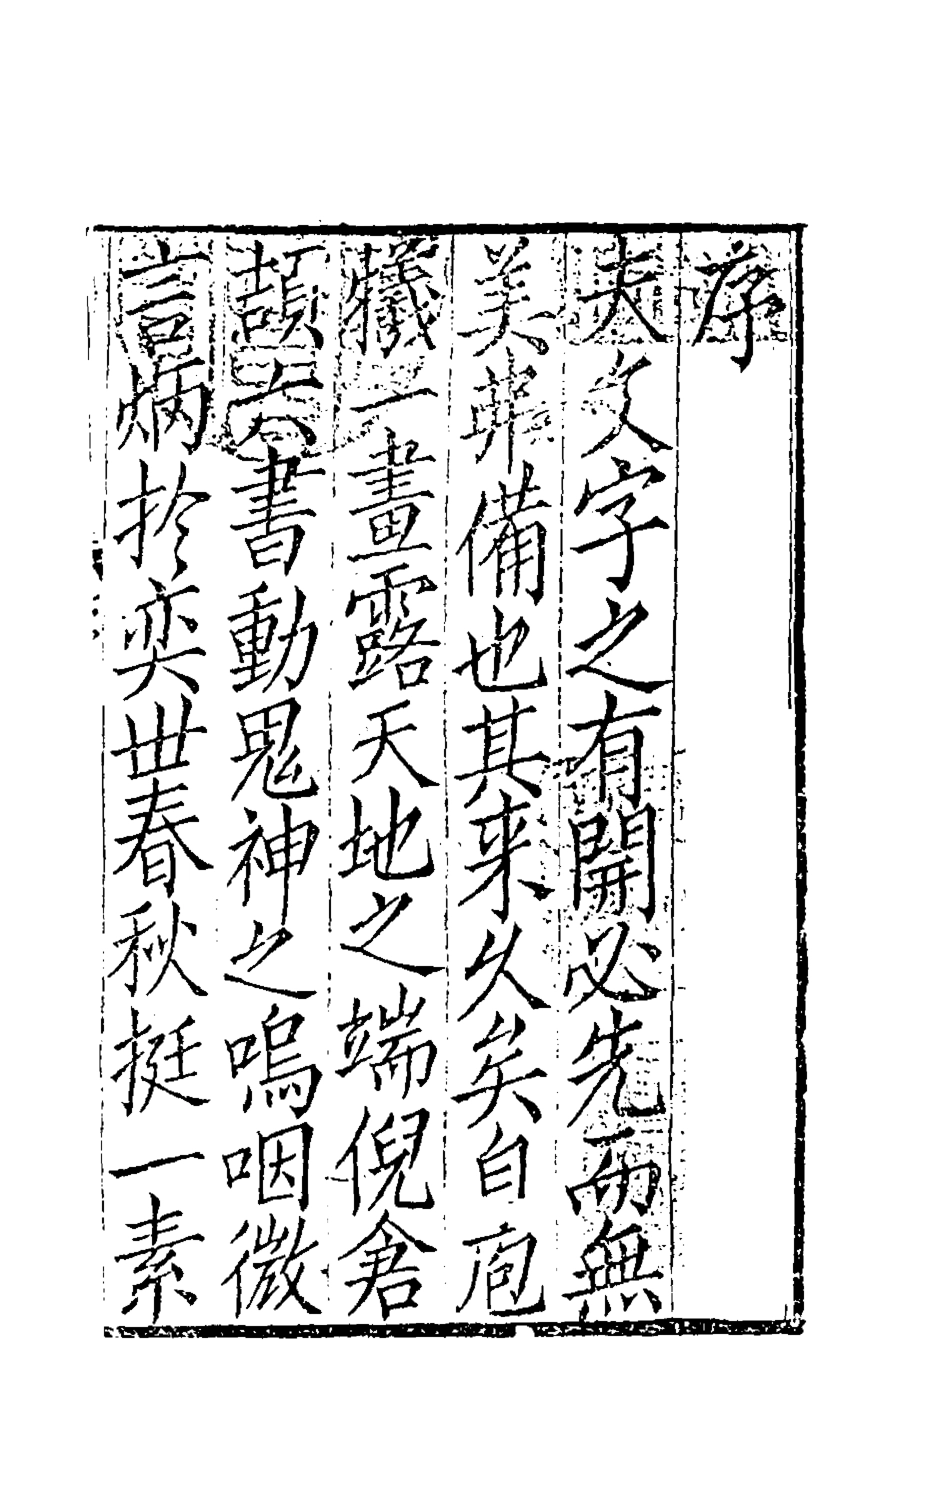 序
夫文字之有開必先而無
美弗備也其来久矣自庖
犧一畫露天地之端倪倉
頡六書動鬼神之嗚咽微
言炳於奕丗春秋挺一素